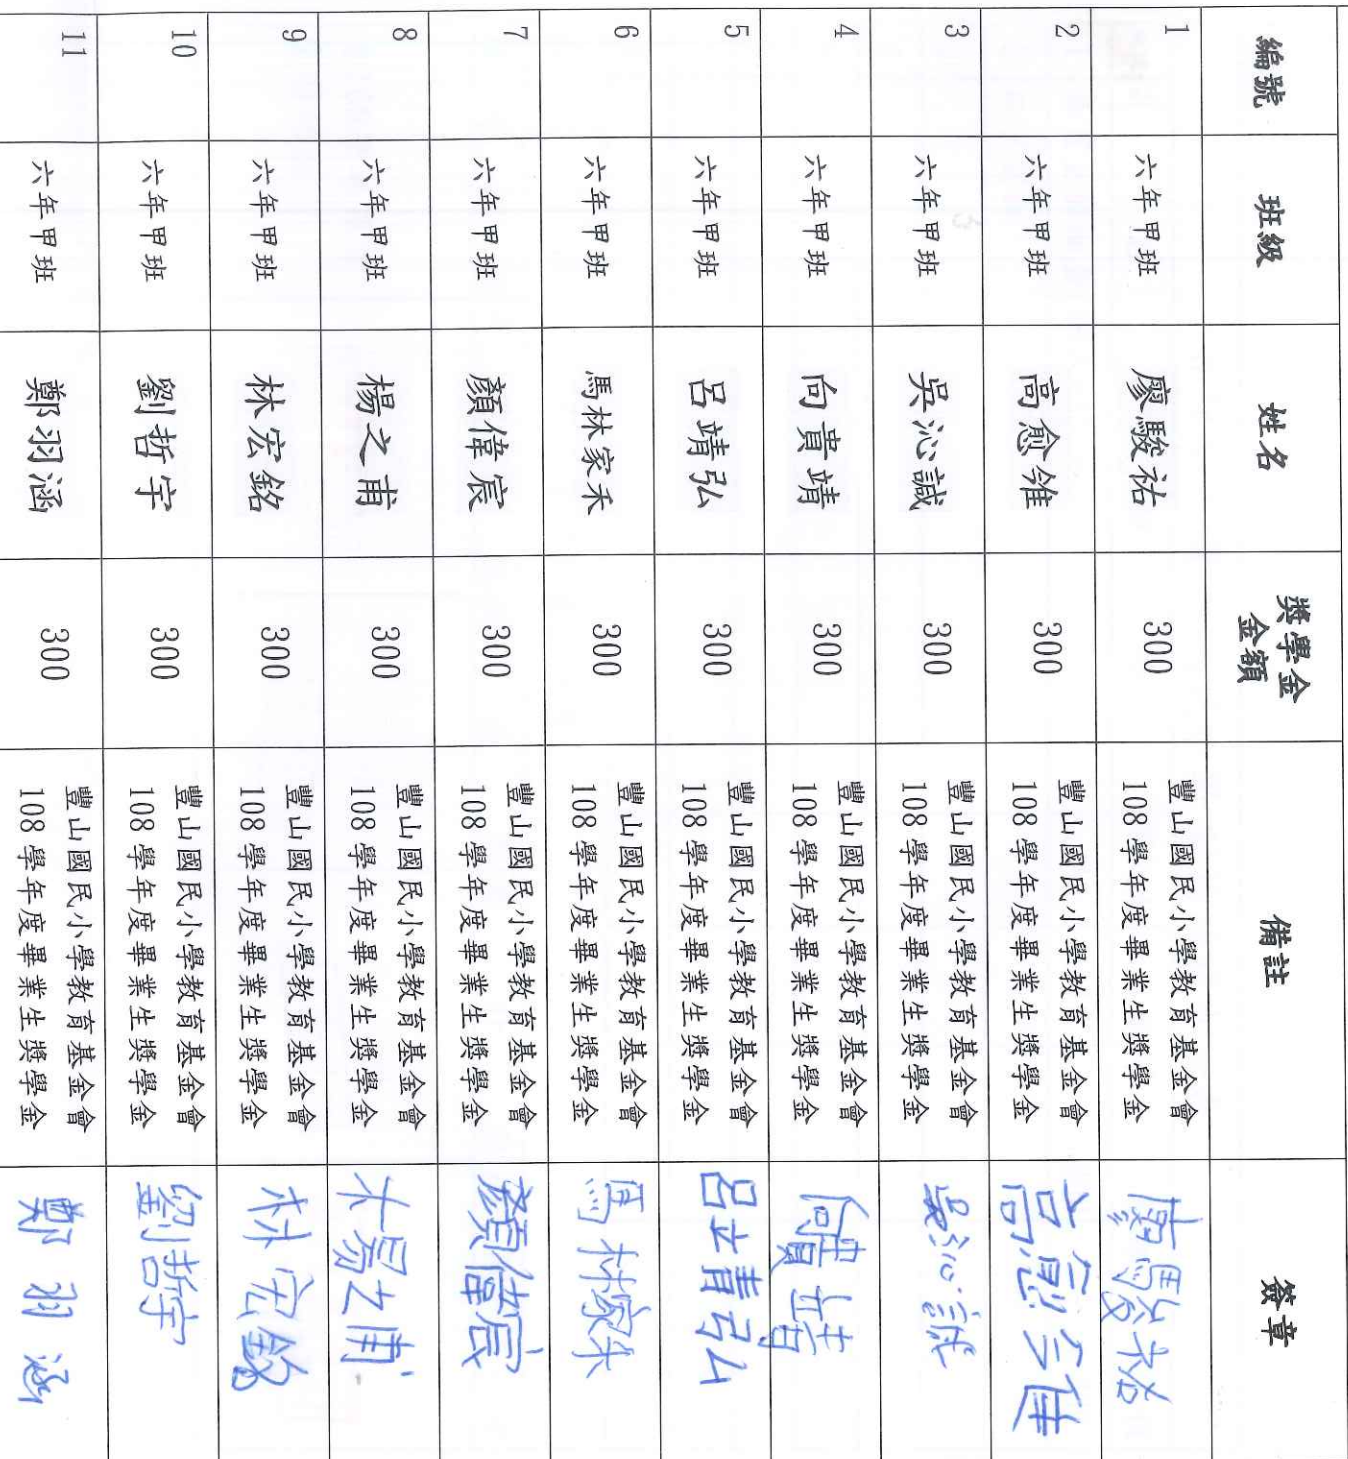 編號 班級 姓名 獎學金 金額 備註 簽章
1 六年甲班 廖駿祐 300 豐山國民小學教育基金會 廖駿祐
108 學年度畢業生獎學金
2 六年甲班 高愈雒 300 豐山國民小學教育基金會
108 學年度畢業生獎學金
3 六年甲班 吳沁諴 300 豐山國民小學教育基金會
108 學年度畢業生獎學金
4 六年甲班 向貴靖 300 豐山國民小學教育基金會 向貴靖
108 學年度畢業生獎學金
5 六年甲班 呂靖弘 300 豐山國民小學教育基金會 呂靖弘
108 學年度畢業生獎學金
6 六年甲班 馬林家禾 300 豐山國民小學教育基金會 馬林家禾
108 學年度畢業生獎學金
7 六年甲班 顏偉宸 300 豐山國民小學教育基金會 顏偉宸
108 學年度畢業生獎學金
8 六年甲班 楊之甫 300 豐山國民小學教育基金會 楊之甫
108 學年度畢業生獎學金
9 六年甲班 林宏銘 300 豐山國民小學教育基金會 林宏銘
108 學年度畢業生獎學金
10 六年甲班 劉哲宇 300 豐山國民小學教育基金會 劉哲宇
108 學年度畢業生獎學金
11 六年甲班 鄭羽涵 300 豐山國民小學教育基金會 鄭羽涵
108 學年度畢業生獎學金